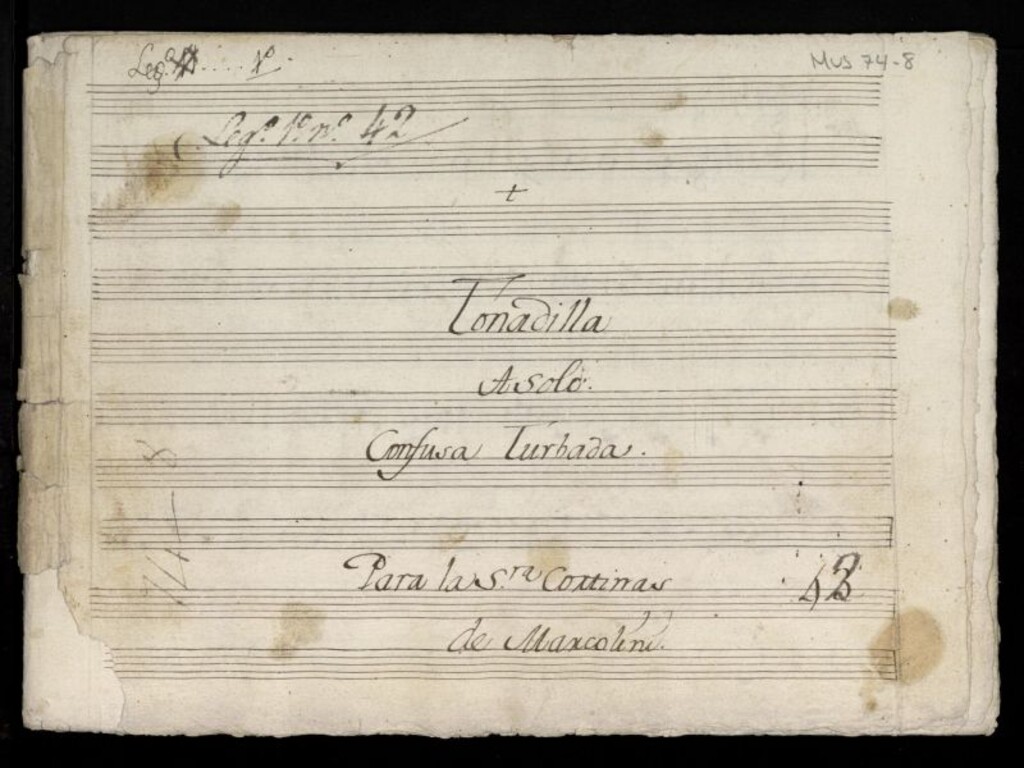 Leg.º 1º
Mus 74-8
Leg.º 1º n.º 42
Tonadilla
A Solo.
Confusa Turbada.
Para la S.ra Cortinas
de Marcolini.
74-8